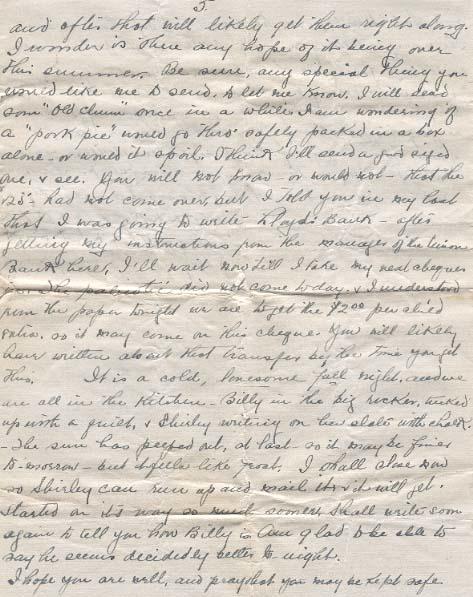 5.
and after that will likely get them right along.
I wonder is there any hope of it being over
this summer. Be sure, any special thing you
would like me to send, to let me know. I will send
som "Old Chum" once in a while. I am wondering if
a "pork pie" would go thro' safely packed in a box
alone - or would it spoil. I think I'll send a good sized
one, & see. You will not know - or would not - that the
had not come over, but I told you in my last
that I was going to write Lloyds Bank - after
getting my instructions from the manager of the Union
Bank here, I'll wait now till I take my next cheque
The patriotic did not come to-day. & I understand
from the paper to-night we are to get the $2.00 per child
extra. so it may come on this cheque. You will likely
have written about that transfer by the time you get
this. It is a cold, lonesome fall night. and we
are all in the kitchen - Billy in the big rocker, tucked
up with a quilt, & Shirley writing on her slate with chalk.
- The sun has peeped out, at last - so it may be finer
to-morrow - but it feels like frost. I shall close now
so Shirley can run up and mail this & it will get
started on it's way so much sooner. Shall write soon
again to tell you how Billy is. Am glad to be able to
say he seems decidedly better to night.
I hope you are well, and pray that you may be kept safe.